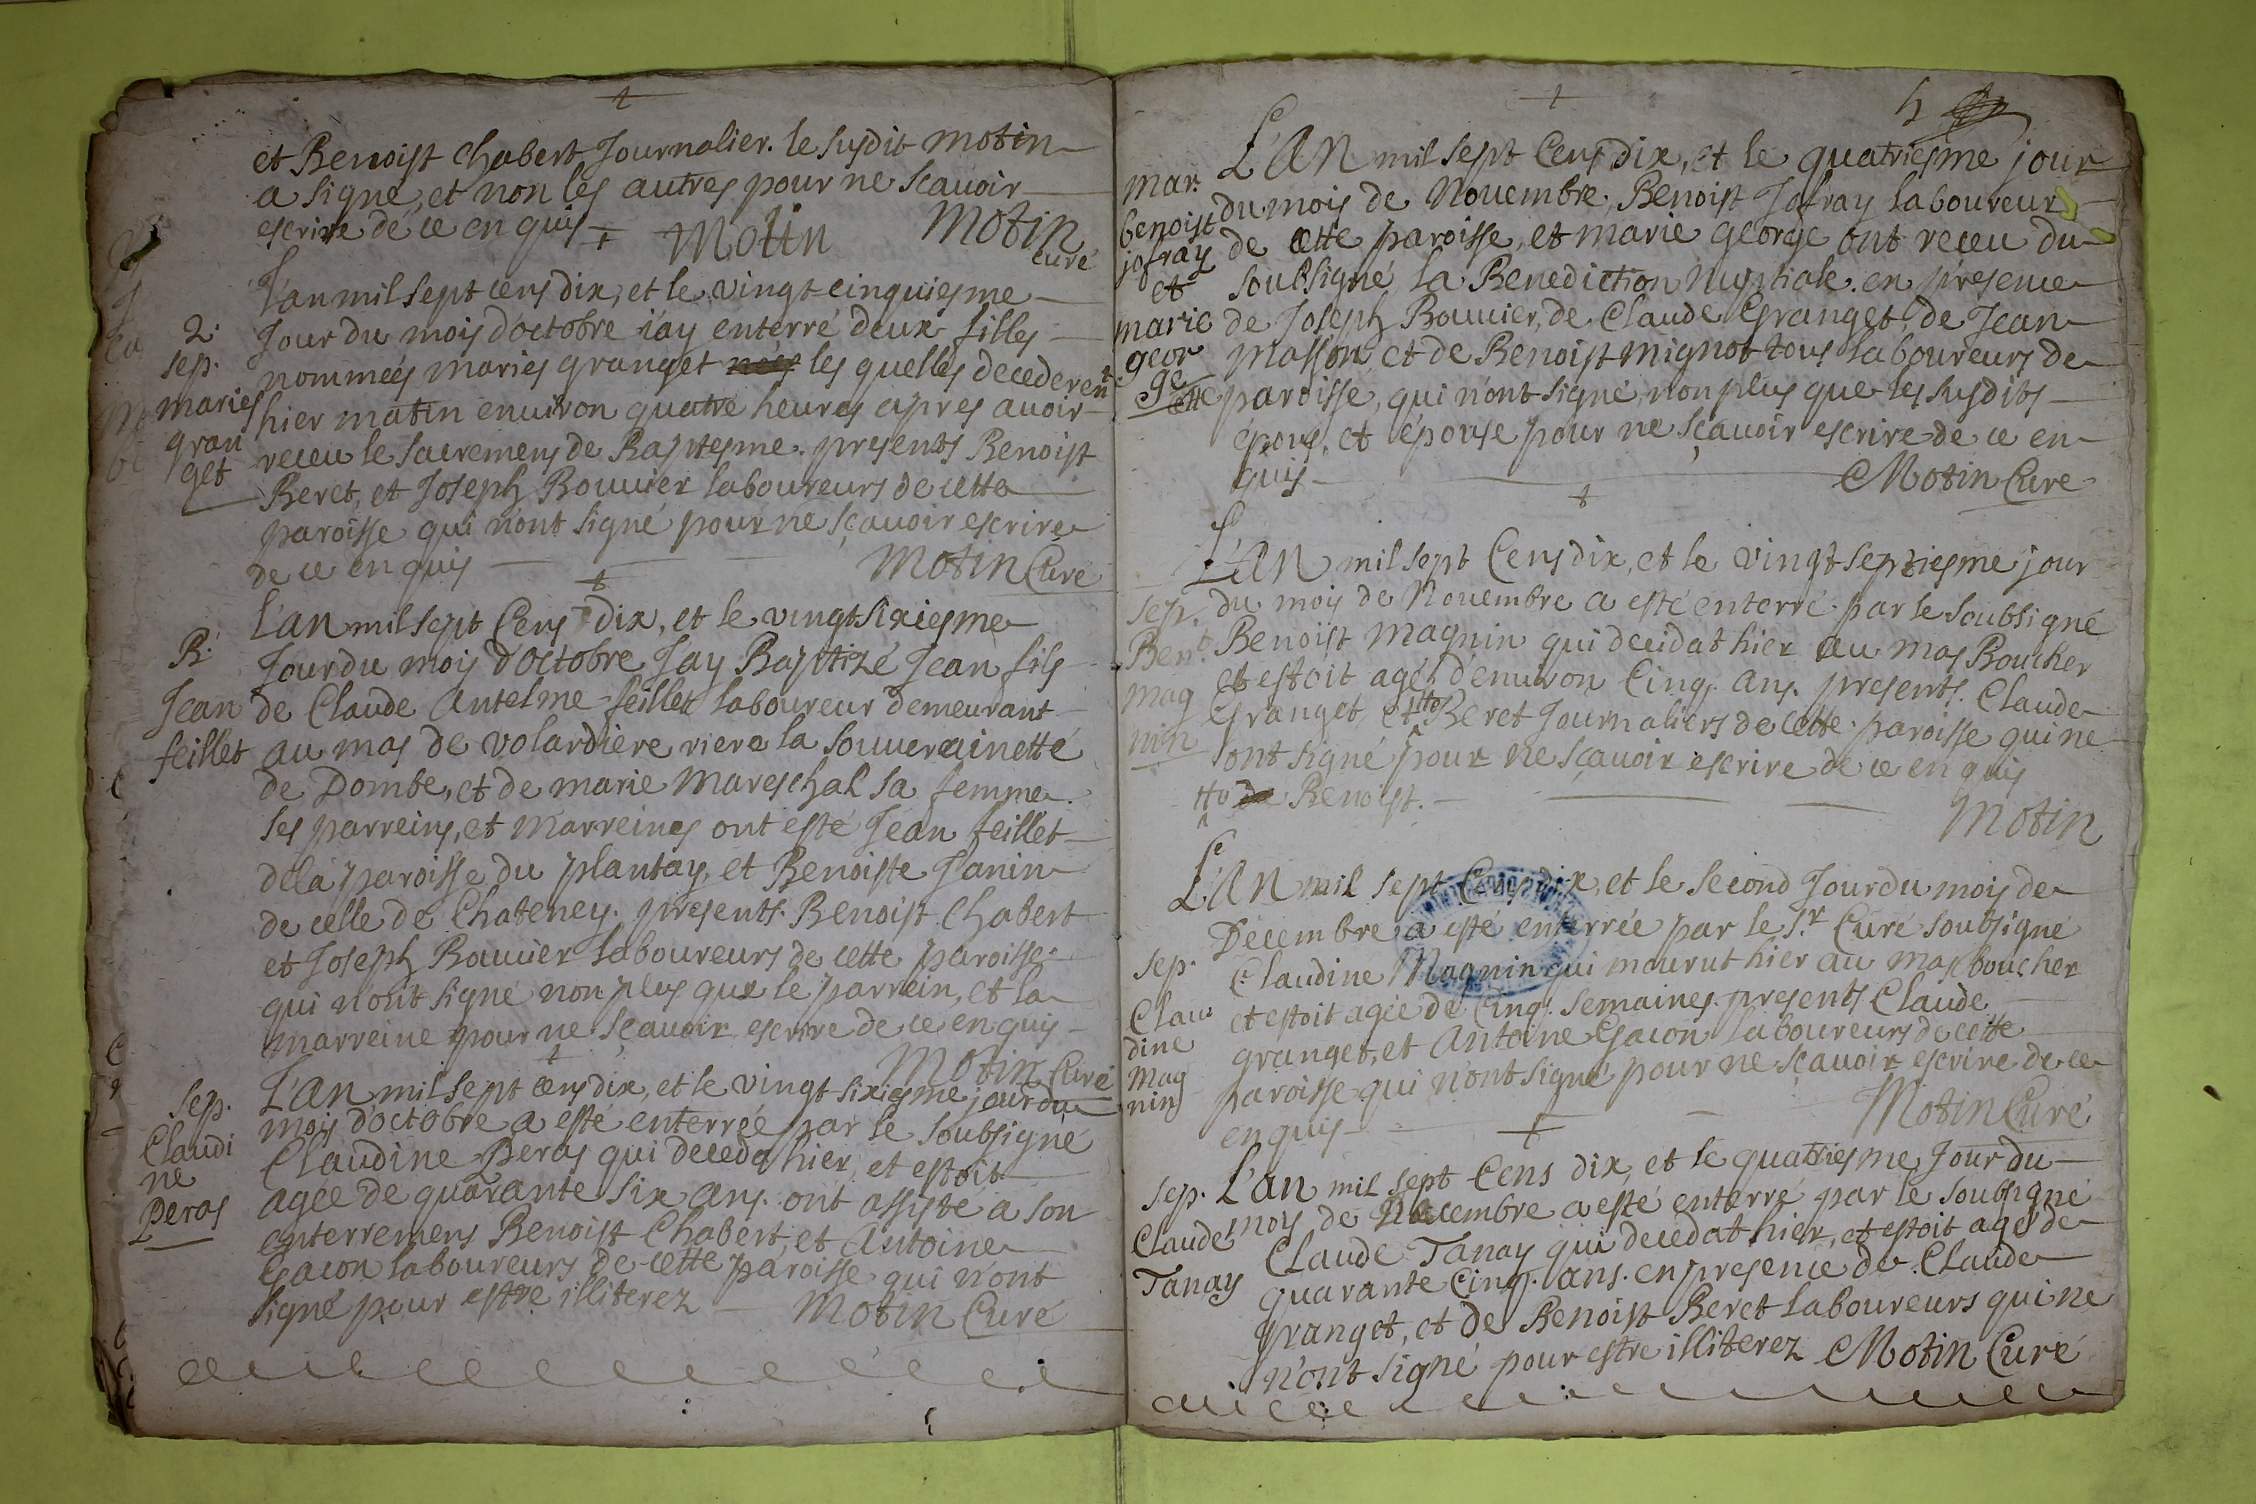 et Benoist chabert Journalier. le susdit motin
a signé, et non les autres pour ne scauoir
escrire de ce enquis Motin Motin
curé
L'an mil sept cens dix, et le vingt-cinquiesme
2. Jour du mois d'octobre i'ay enterré deux filles
sep. nommeés maries granget les quelles decederent
maries hier matin enuiron quatre heures apres auoir
gran receu le sacremens de Baptesme. presents Benoist
get Beret, et Joseph Bouuier laboureurs de cette
paroisse qui n'ont signé pour ne sçauoir escrire
de ce enquis Motin Curé
L'an mil sept Cens dix, et le vingt sixiesme
B. Jour du mois d'Octobre Jay Baptizé Jean fils
Jean de Claude Antelme feillet laboureur demeurant
feillet au mas de volardiere riere la souuerainetté
de Dombe, et de marie Mareschal sa femme.
ses parreins, et Marreines ont esté Jean feillet
de la paroisse du plantay, et Benoiste Janin
de celle de Chateney. presents. Benoist Chabert
et Joseph Bouuier laboureurs de cette paroisse.
qui n'ont signé non plus que le parrein, et la
marreine pour ne sçauoir escrire de ce enquis
Motin Curé
sep. L'an mil sept cens dix, et le vingt-sixiesme jour du
mois d'octobre a esté enterrée par le soubsigné
Claudi Claudine Peras qui deceda hier, et estoit
ne agée de quarante six ans. ont assisté a son
Peras enterremens Benoist Chabert, et Antoine
Gacon laboureurs de cette paroisse qui n'ont
signé pour estre illiterez Motin Curé
L'An mil sept Cens dix, et le quatriesme jour
mar. du mois de Nouembre, Benoist Jofray laboureur
benoist de cette paroisse, et marie george ont receu du
jofray soubsigné la Benediction Nuptiale. en presence
et de Joseph Bouuier, de Claude Granget, de Jean
marie Masson, et de Benoist mignot tous laboureurs de
geor cette paroisse, qui n'ont signé, non plus que les susdits
ge époux, et épouse pour ne sçauoir escrire de ce en
quis Motin Curé
L'An mil sept Cens dix, et le vingt-septiesme jour
sep. du mois de Nouembre a esté enterré par le soubsigné
Bent. Benoist Magnin qui decidat hier au mas Boucher
mag et estoit agé d'enuiron Cinq. ans. presents. Claude
nin Granget, et tto Beret Journaliers de cette paroisse qui ne
ont signé pour ne sçauoir escrire de ce enquis
tto Benoist.
Motin
L'An mil sept Cens dix, et le second Jour du mois de
Decembre a esté enterrée par le Sr. Curé soubsigné
sep. Claudine Magnin qui mourut hier au mas boucher
Clau et estoit agée de Cinq. semaines. presents Claude
dine granget, et Antoine Gacon laboureurs de cette
Mag paroisse qui n'ont signé pour ne sçauoir escrire de ce
nin enquis Motin Curé
sep. L'an mil sept Cens dix, et le quatriesme Jour du
Claude mois de Decembre a esté enterré par le soubsigné
Claude Tanay qui decedat hier, et estoit agé de
Tanay quarante Cinq. ans. en presence de Claude
granget, et de Benoist Beret laboureurs qui ne
n'ont signé pour estre illiterez Motin Curé